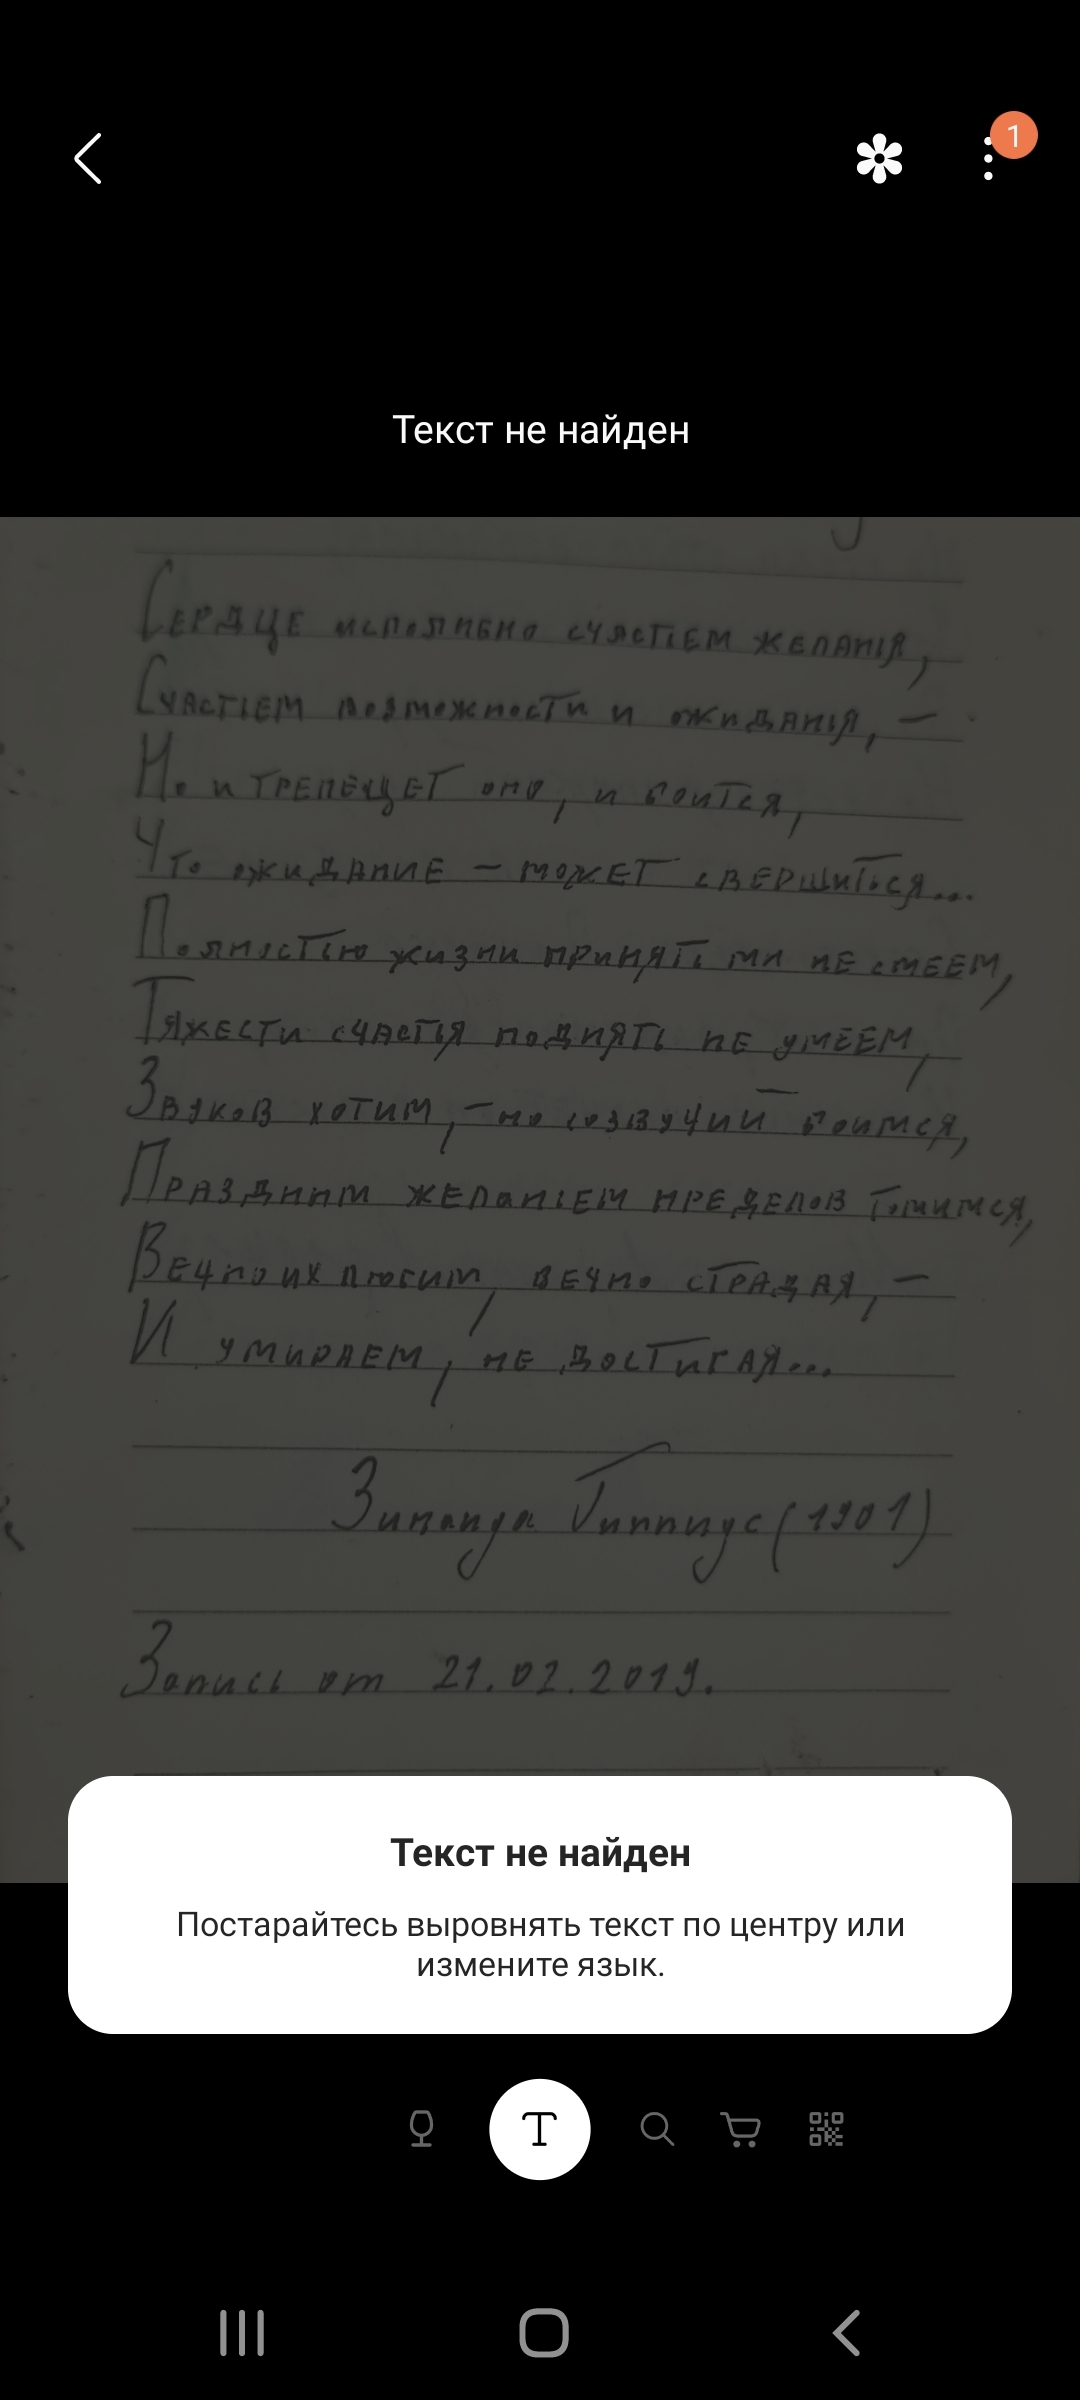 1
Текст не найден
Сердце исполнено счастiем желанiя,
Счастiем возможности и ожиданiя, –
Но и трепещет оно, и боится,
Что ожидание – может свершиться...
Полностью жизни принять мы не смеем,
Тяжести счастья поднять не умеем,
Звуков хотим, – но созвучий боимся,
Праздным желанiем пределов томимся,
Вечно их любим, вечно страдая, –
И умираем, не достигая...
Зинаида Гиппиус (1901)
Запись от 21.02.2019.
Текст не найден
Постарайтесь выровнять текст по центру или
измените язык.
T